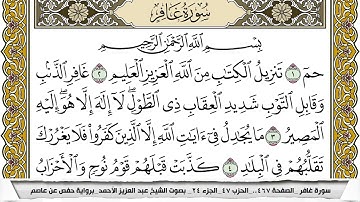 سورة غافر
بسم الله الرحمن الرحيم
حم ١ تنزيل الكتاب من الله العزيز العليم ٢ غافر الذنب
وقابل التوب شديد العقاب ذي الطول لا إله إلا هو إليه
المصير ٣ ما يجادل في ءايات الله إلا الذين كفروا فلا يغررك
تقلبهم في البلاد ٤ كذبت قبلهم قوم نوح والأحزاب
سورة غافر _ الصفحة ٤٦٧ _ الحزب ٤٧ _ الجزء ٢٤ _ بصوت الشيخ عبد العزيز الأحمد _ برواية حفص عن عاصم